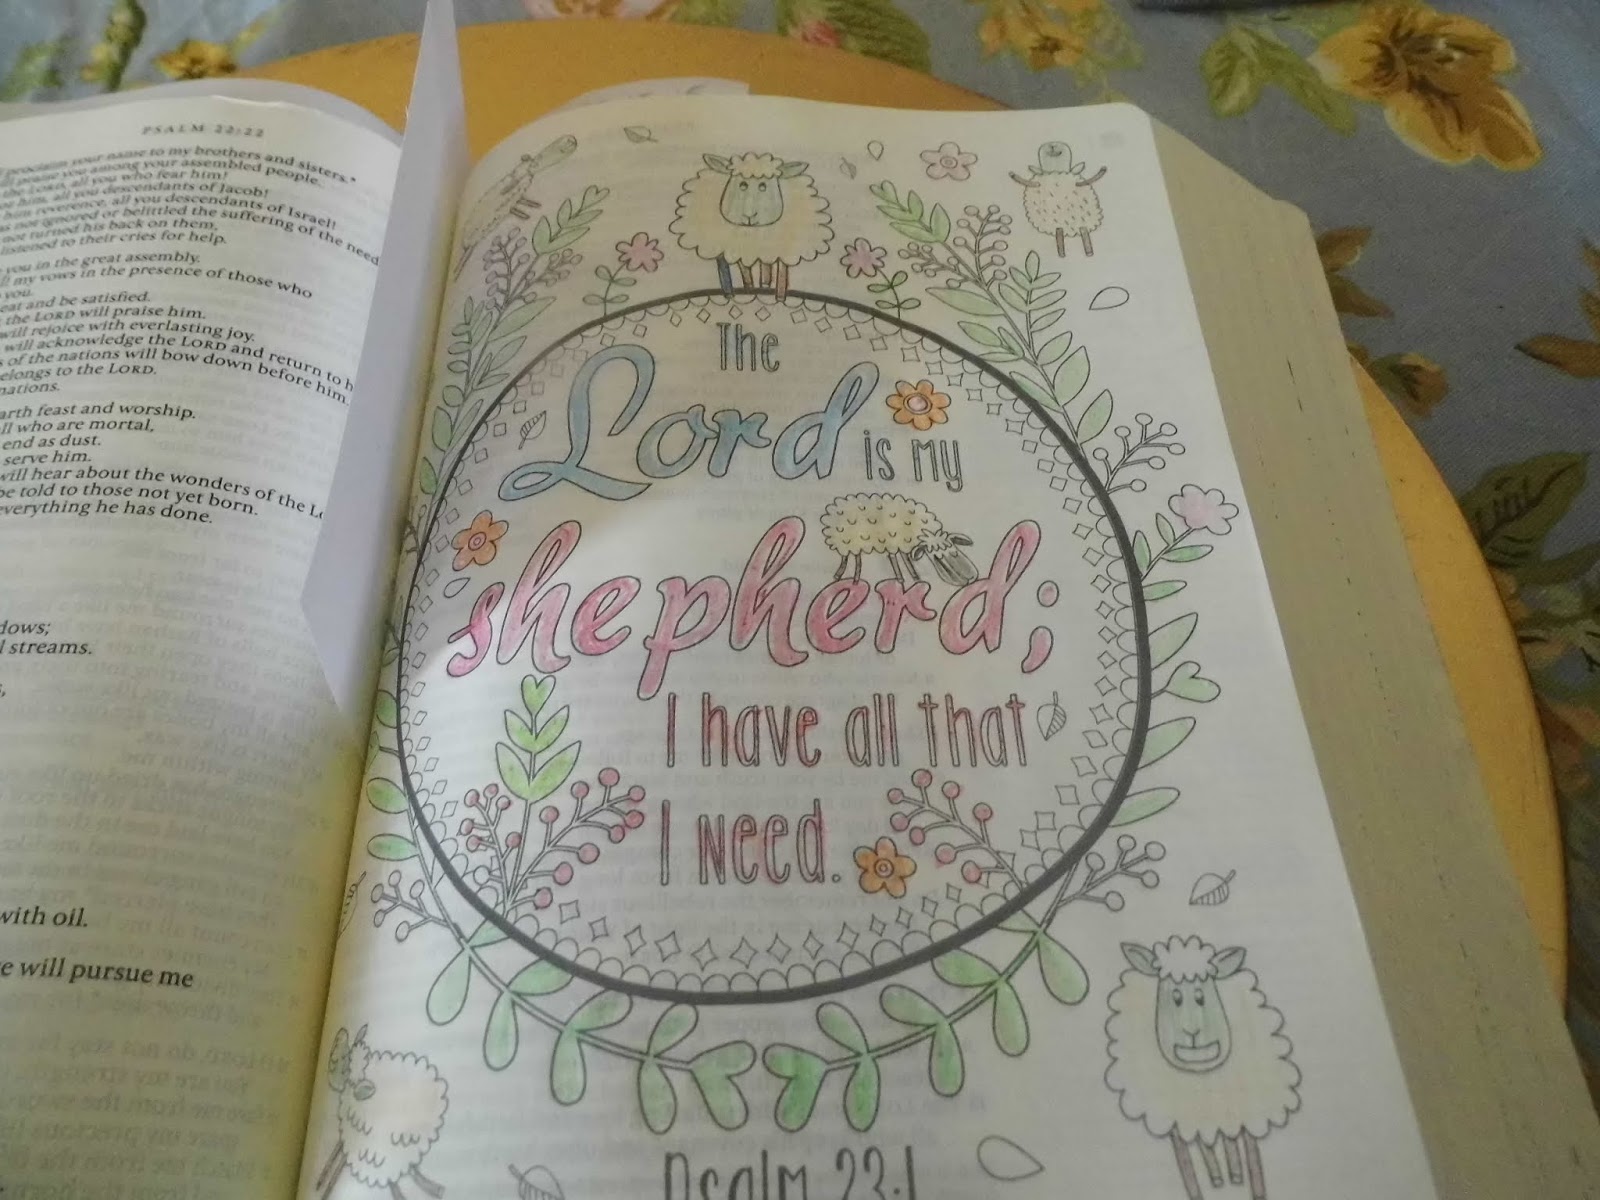 PSALM 22:22
proclaim your name to my brothers and sisters.*
praise you among your assembled people.
the LORD, all you who fear him!
him, all you descendants of Jacob!
him reverence, all you descendants of Israel!
not ignored or belittled the suffering of the need
not turned his back on them,
listened to their cries for help.
you in the great assembly.
my vows in the presence of those who
you.
eat and be satisfied.
the LORD will praise him.
will rejoice with everlasting joy.
will acknowledge the LORD and return to h
of the nations will bow down before him.
belongs to the LORD.
nations.
earth feast and worship.
all who are mortal,
end as dust.
serve him.
will hear about the wonders of the Lo
be told to those not yet born.
everything he has done.
dows;
l streams.
with oil.
e will pursue me
The
Lord is my
shepherd;
I have all that
I need.
Psalm 23:1